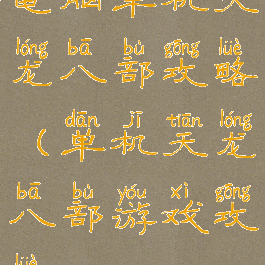 单机天
lóng bā bù gōng lüè
龙八部攻略
dān jī tiān lóng
（单机天龙
bā bù yóu xì gōng
八部游戏攻
lüè